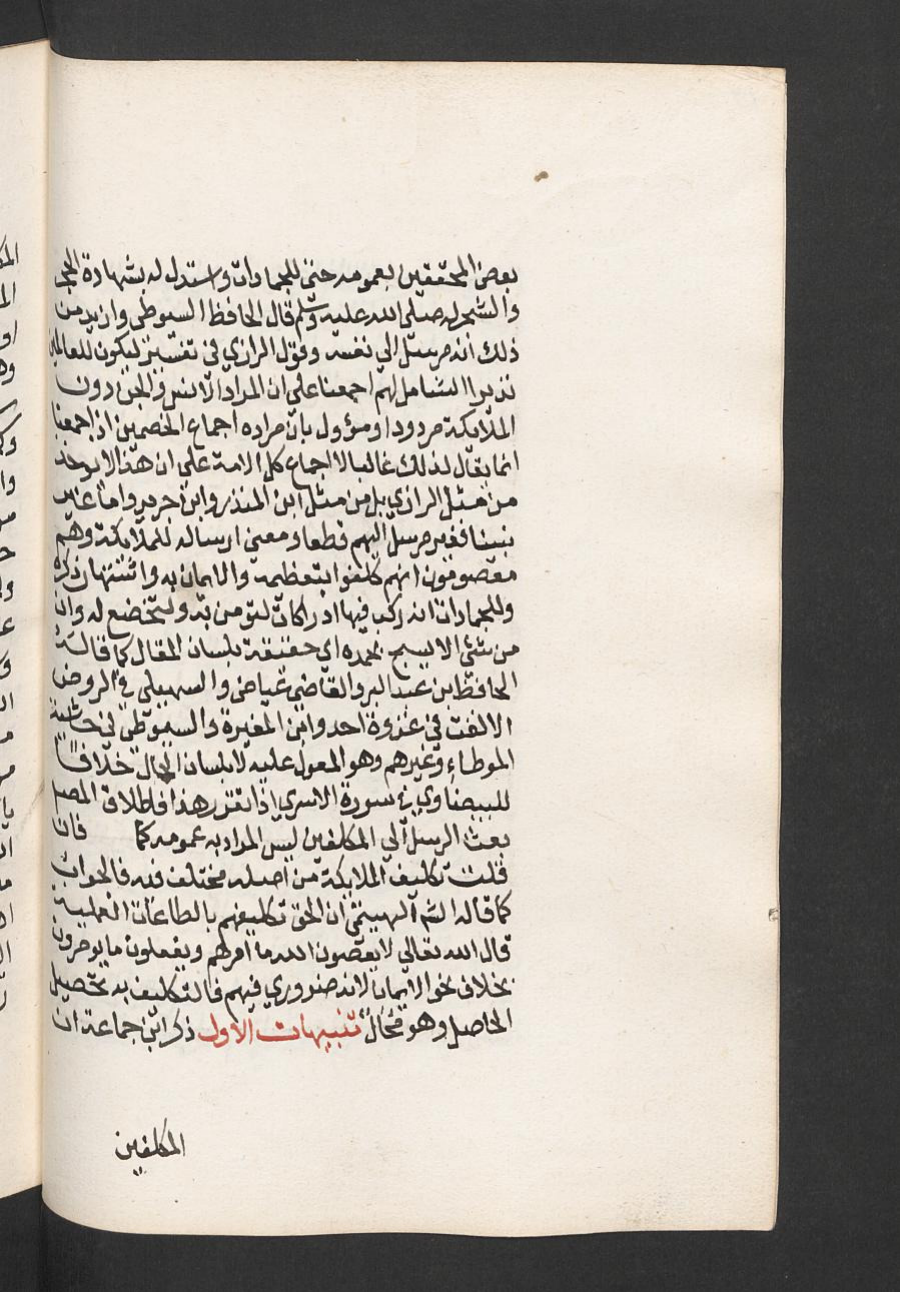 بعض المحققين بعمومه حتى للجمادات واستدل له بشهادة الحجر
والشجر له صلى الله عليه وسلم قال الحافظ السيوطي وازيد من
ذلك انه مرسل الي نفسه وقول الرازي في تفسير ليكون للعالمين
نذيرا الشامل لهم اجمعنا علي ان المراد الانس والجن دون
الملائكة مردود او مؤول بان مراده اجماع الخصمين اذ اجمعنا
انما يقال لذلك غالبا لا اجماع كل الامة علي ان هذا لا يوخذ
من مثل الرازي بل من مثل ابن المنذر وابن جرير واما غير
نبينا فغير مرسل اليهم قطعا ومعني ارساله للملائكة وهم
معصومون انهم كلفوا بتعظيمه والايمان به واشتهار ذكره
وللجمادات انه ركب فيها ادراكات لتومن به ولتخضع له وان
من شئ الا يسبح بحمده اي حقيقة بلسان المقال كما قاله
الحافظ ابن عبد البر والقاضي عياض والسهيلي في الروض
الالف في غزوة احد وابن المغيرة والسيوطي في حاشية
الموطاء وغيرهم وهو المعول عليه لا بلسان الحال خلافا
للبيضاوي في سورة الاسري اذا تقرر هذا فاطلاق المص
بعث الرسل الي المكلفين ليس المراد به عمومه كما فان
قلت تكليف الملايكة من اصله مختلف فيه فالجواب
كما قاله الشم الهيتمي ان الحق تكليفهم بالطاعات العملية
قال الله تعالي لا يعصون الله ما امرهم ويفعلون ما يومرون
بخلاف نحو الايمان لانه ضروري فيهم فالتكليف به تحصيل
الحاصل وهو محال تنبيهات الاول ذكر ابن جماعة ان
المكلفين